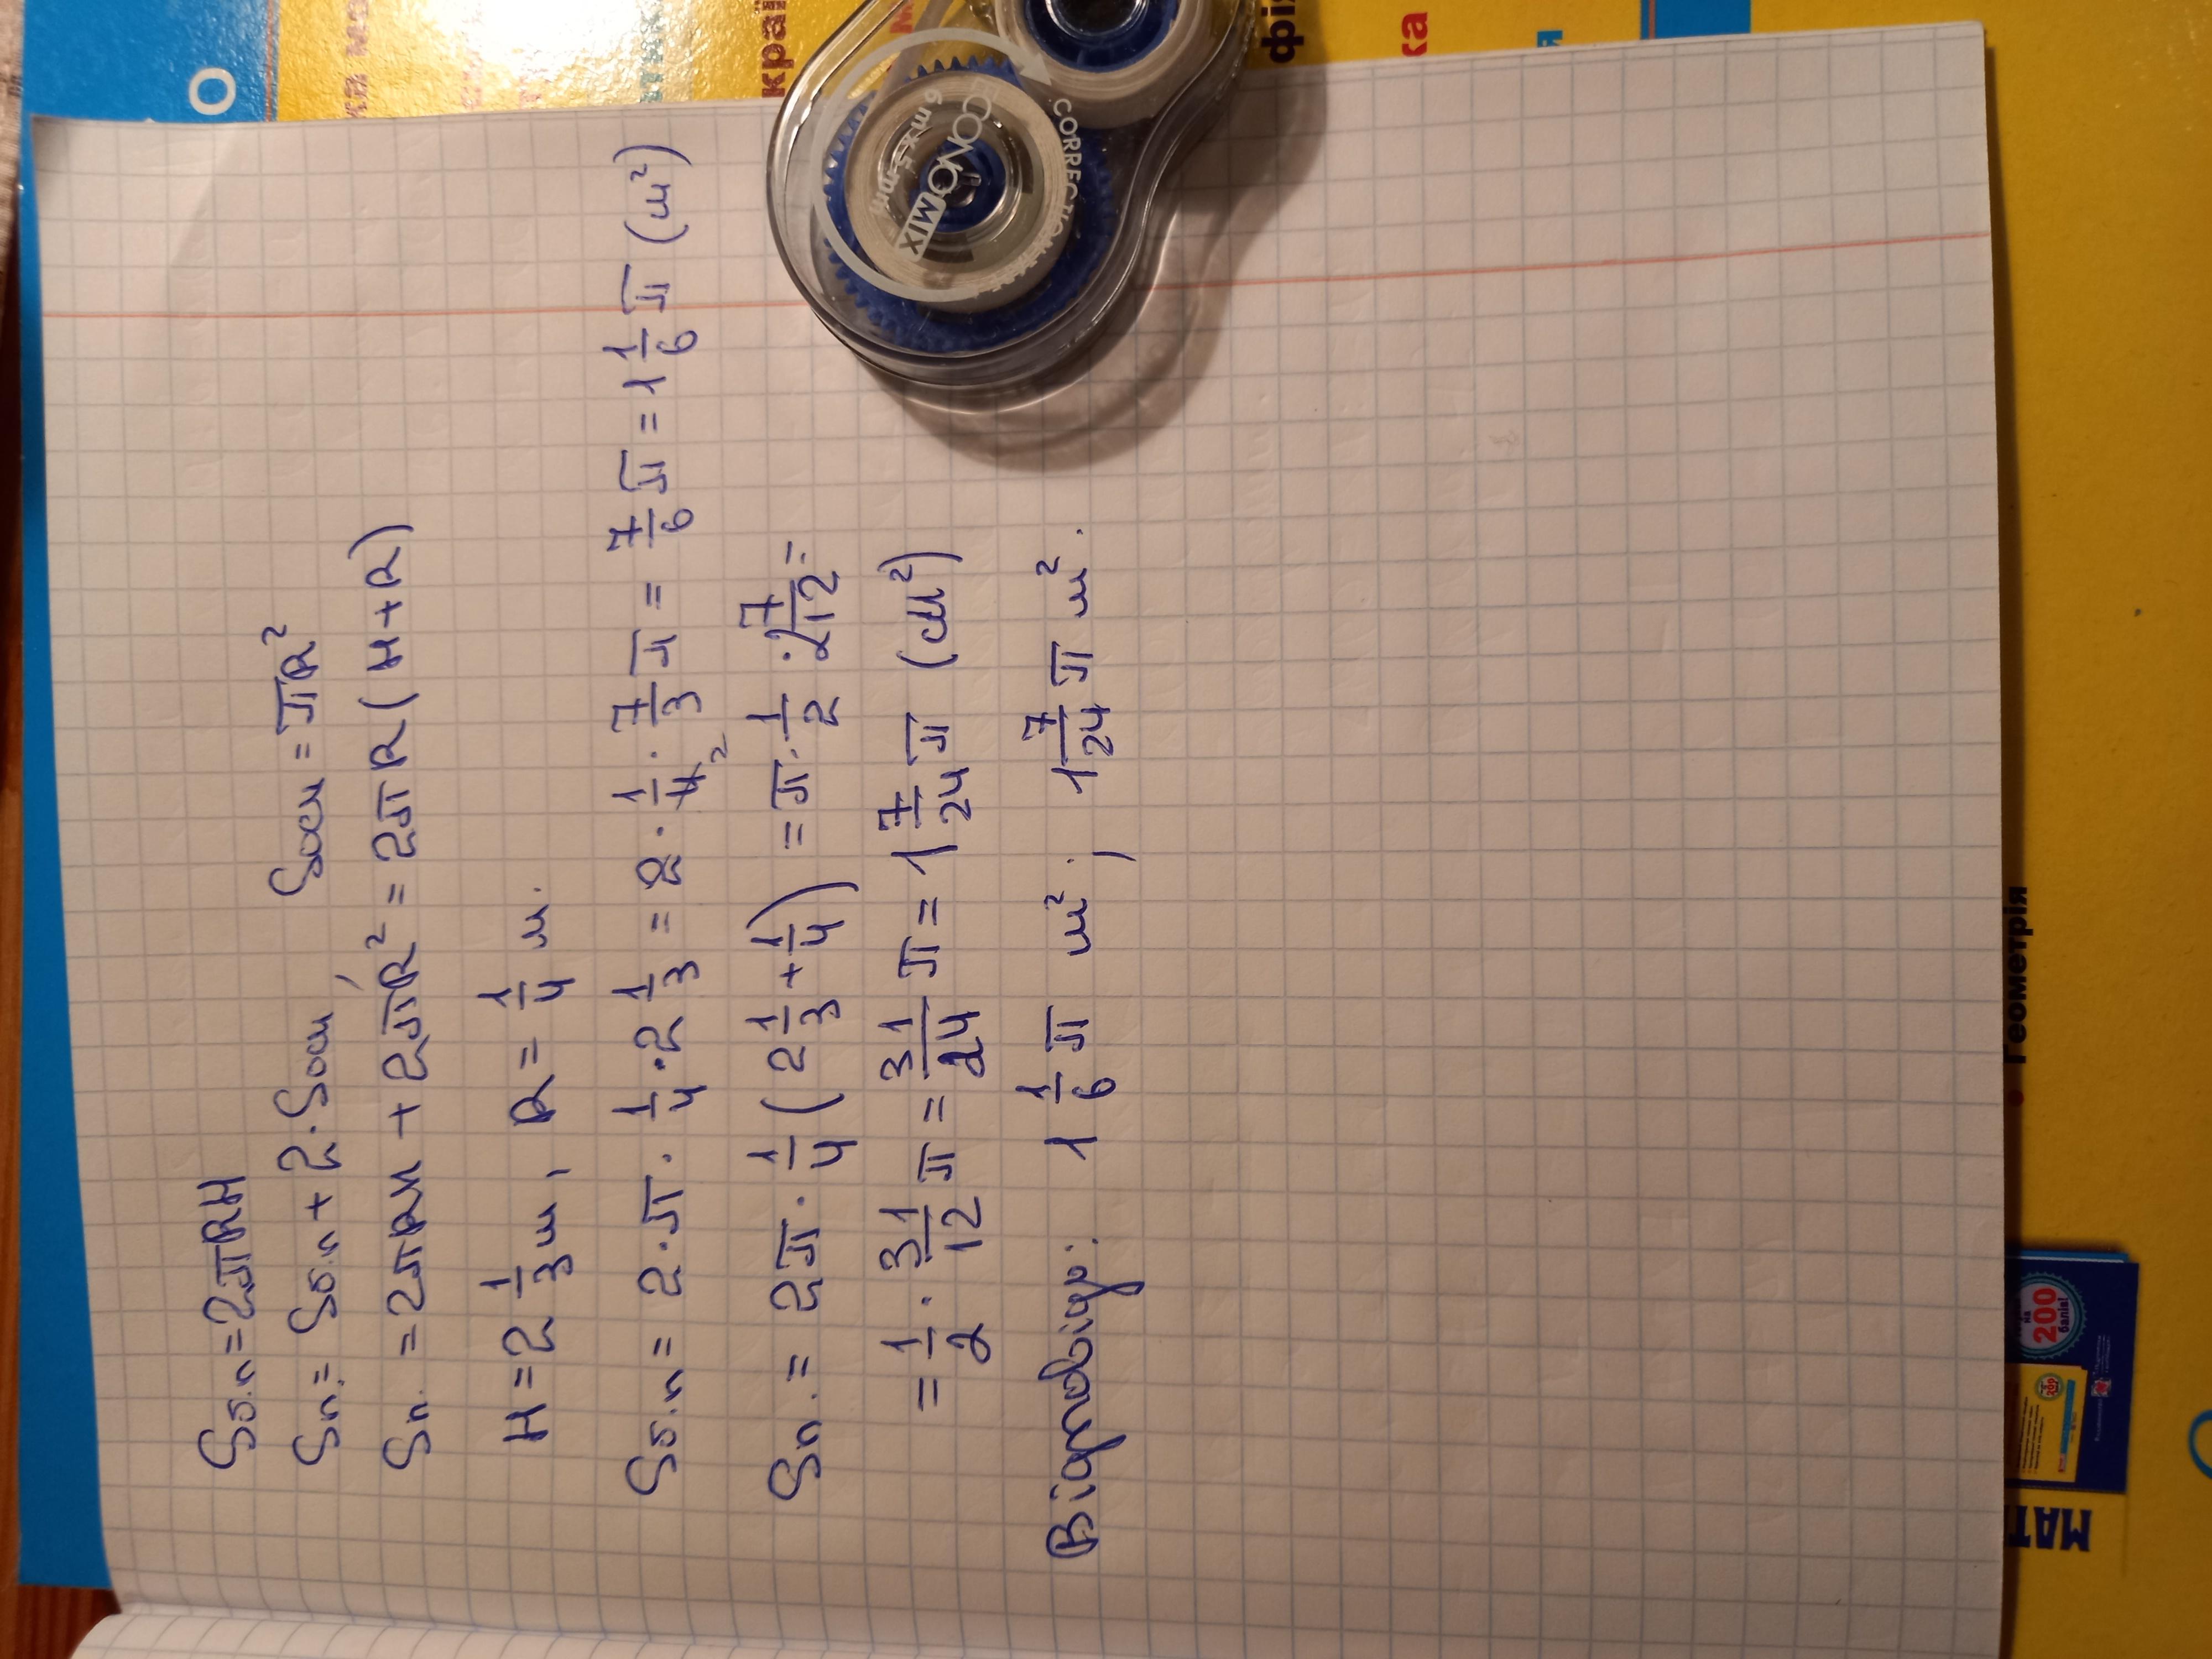 Sб.п = 2πRH
Sп. = Sб.п + 2·Sосн, Sосн = πR²
Sп. = 2πRH + 2πR² = 2πR(H+R)
H = 2 1/3 м, R = 1/4 м.
Sб.п = 2·π·1/4·2 1/3 = 2·1/4₂·7/3 π = 7/6 π = 1 1/6 π (м²)
Sп. = 2π·1/4(2 1/3 + 1/4) = π·1/2·2 7/12 =
= 1/2·31/12 π = 31/24 π = 1 7/24 π (см²)
Відповідь: 1 1/6 π м²; 1 7/24 π м².
CORRECTION
MONO MIX
6mm×5m
• Геометрія
200
балів!